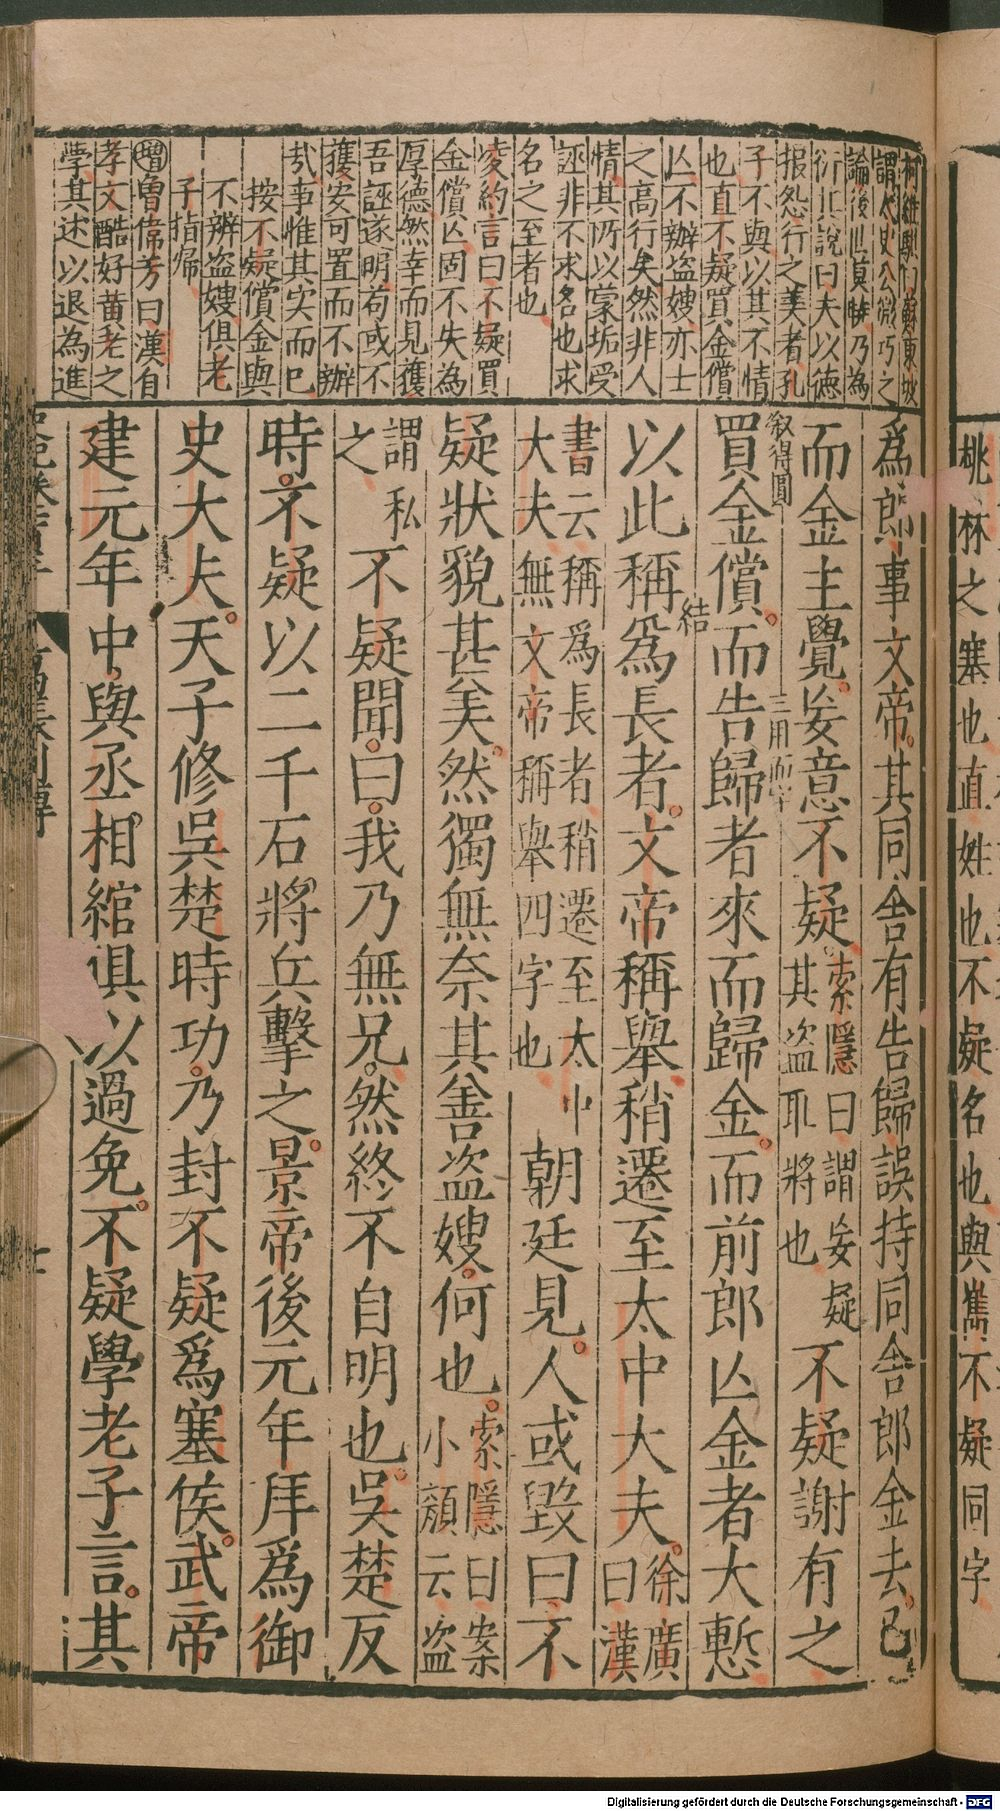 桃林之塞也直姓也不疑名也與雋不疑同字
柯維騏曰蘇東坡
謂太史公微巧之
論後世莫曉乃為
衍其說曰夫以德
報怨行之美者孔
子不與以其不情
也直不疑買金償
亾不辦盜嫂亦士
之高行矣然非人
情其所以蒙垢受
誣非不求名也求
名之至者也
凌約言曰不疑買
金償亾固不失為
厚德然幸而見獲
吾誣遂明苟或不
獲安可置而不辦
㢤事惟其实而巳
按不疑償金與
不辨盜嫂俱老
子指㱕
增魯偉芳曰漢自
孝文酷好黃老之
學其述以退為進
爲郎事文帝其同舍有告歸誤持同舍郎金去已
而金主覺妄意不疑
索隱曰謂妄疑
其盗取將也
不疑謝有之
敘得圓
三用而字
買金償而告歸者來而歸金而前郎亾金者大慙
結
以此稱爲長者文帝稱舉稍遷至太中大夫
徐廣
曰漢
書云稱爲長者稍遷至太中
大夫無文帝稱舉四字也
朝廷見人或毀曰不
疑狀貌甚美然獨無奈其善盗嫂何也
索隱曰案
小顔云盗
謂私
之
不疑聞曰我乃無兄然終不自明也吳楚反
時不疑以二千石將兵擊之景帝後元年拜爲御
史大夫天子修吳楚時功乃封不疑爲塞侯武帝
建元年中與丞相綰俱以過免不疑學老子言其